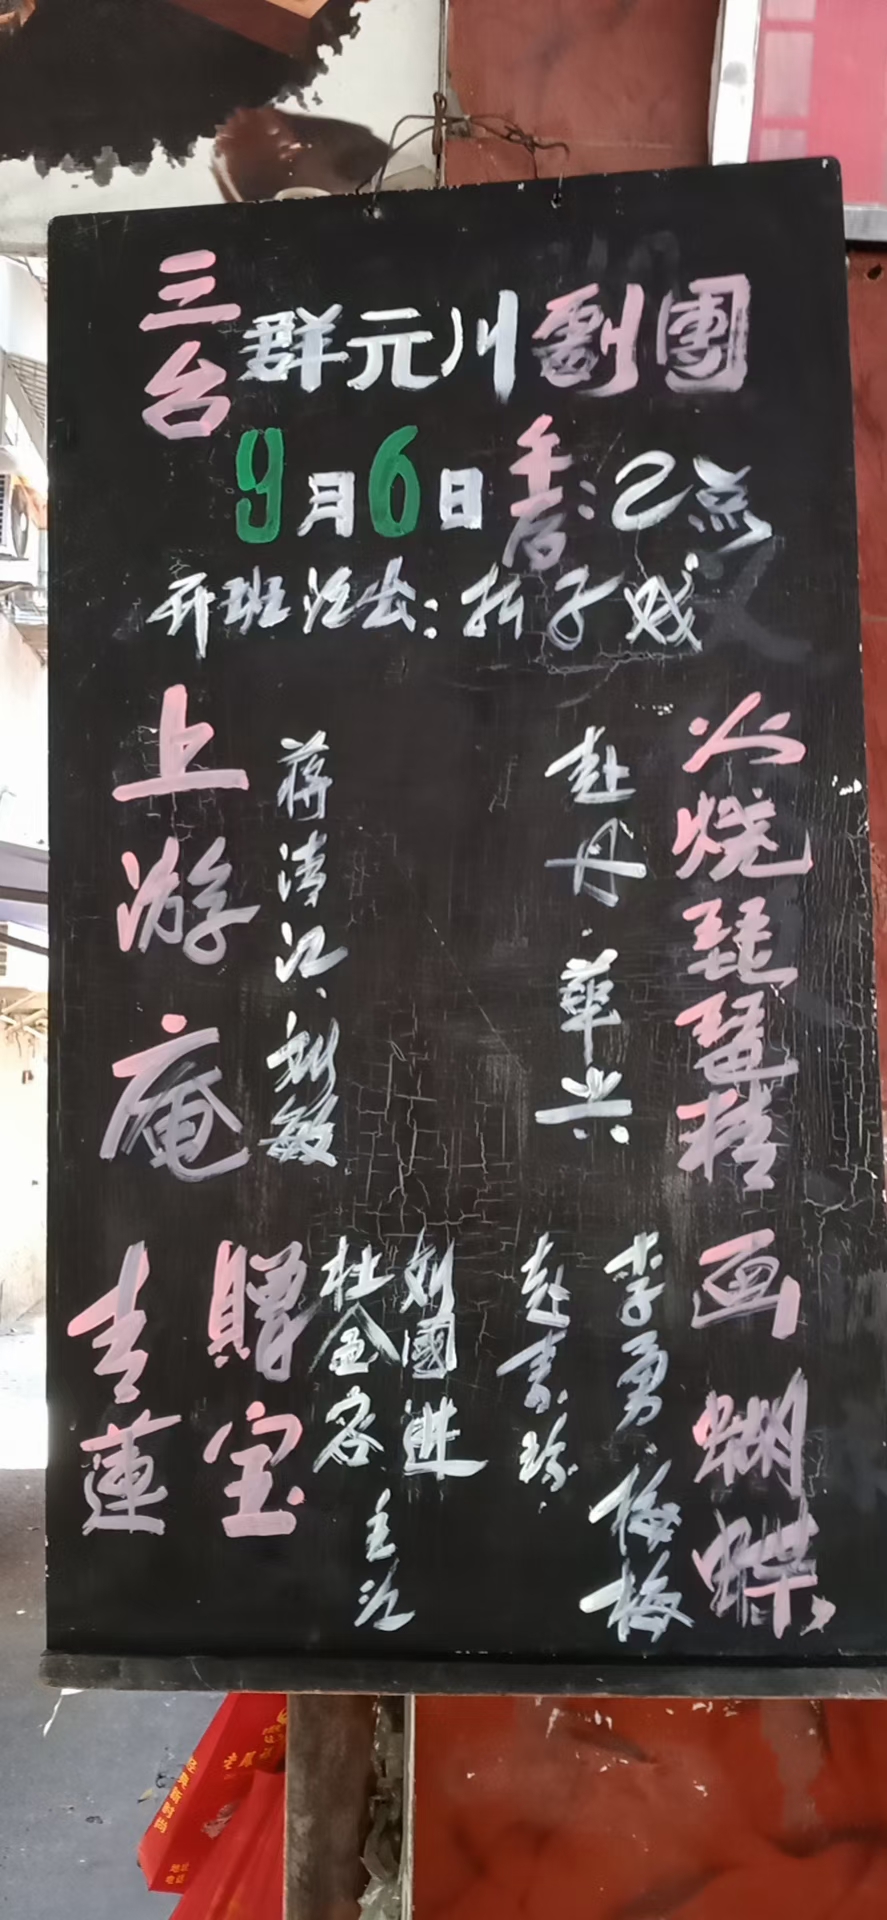 三台群元川劇團
9月6日午后:2点
开班演出:折子戏
火烧琵琶精
赵丹.華兴
上游庵
蒋清江、刘敏
画蝴蝶
李勇.梅梅
赵 珍
刘國進
杜 容
主演
贈宝
蓮